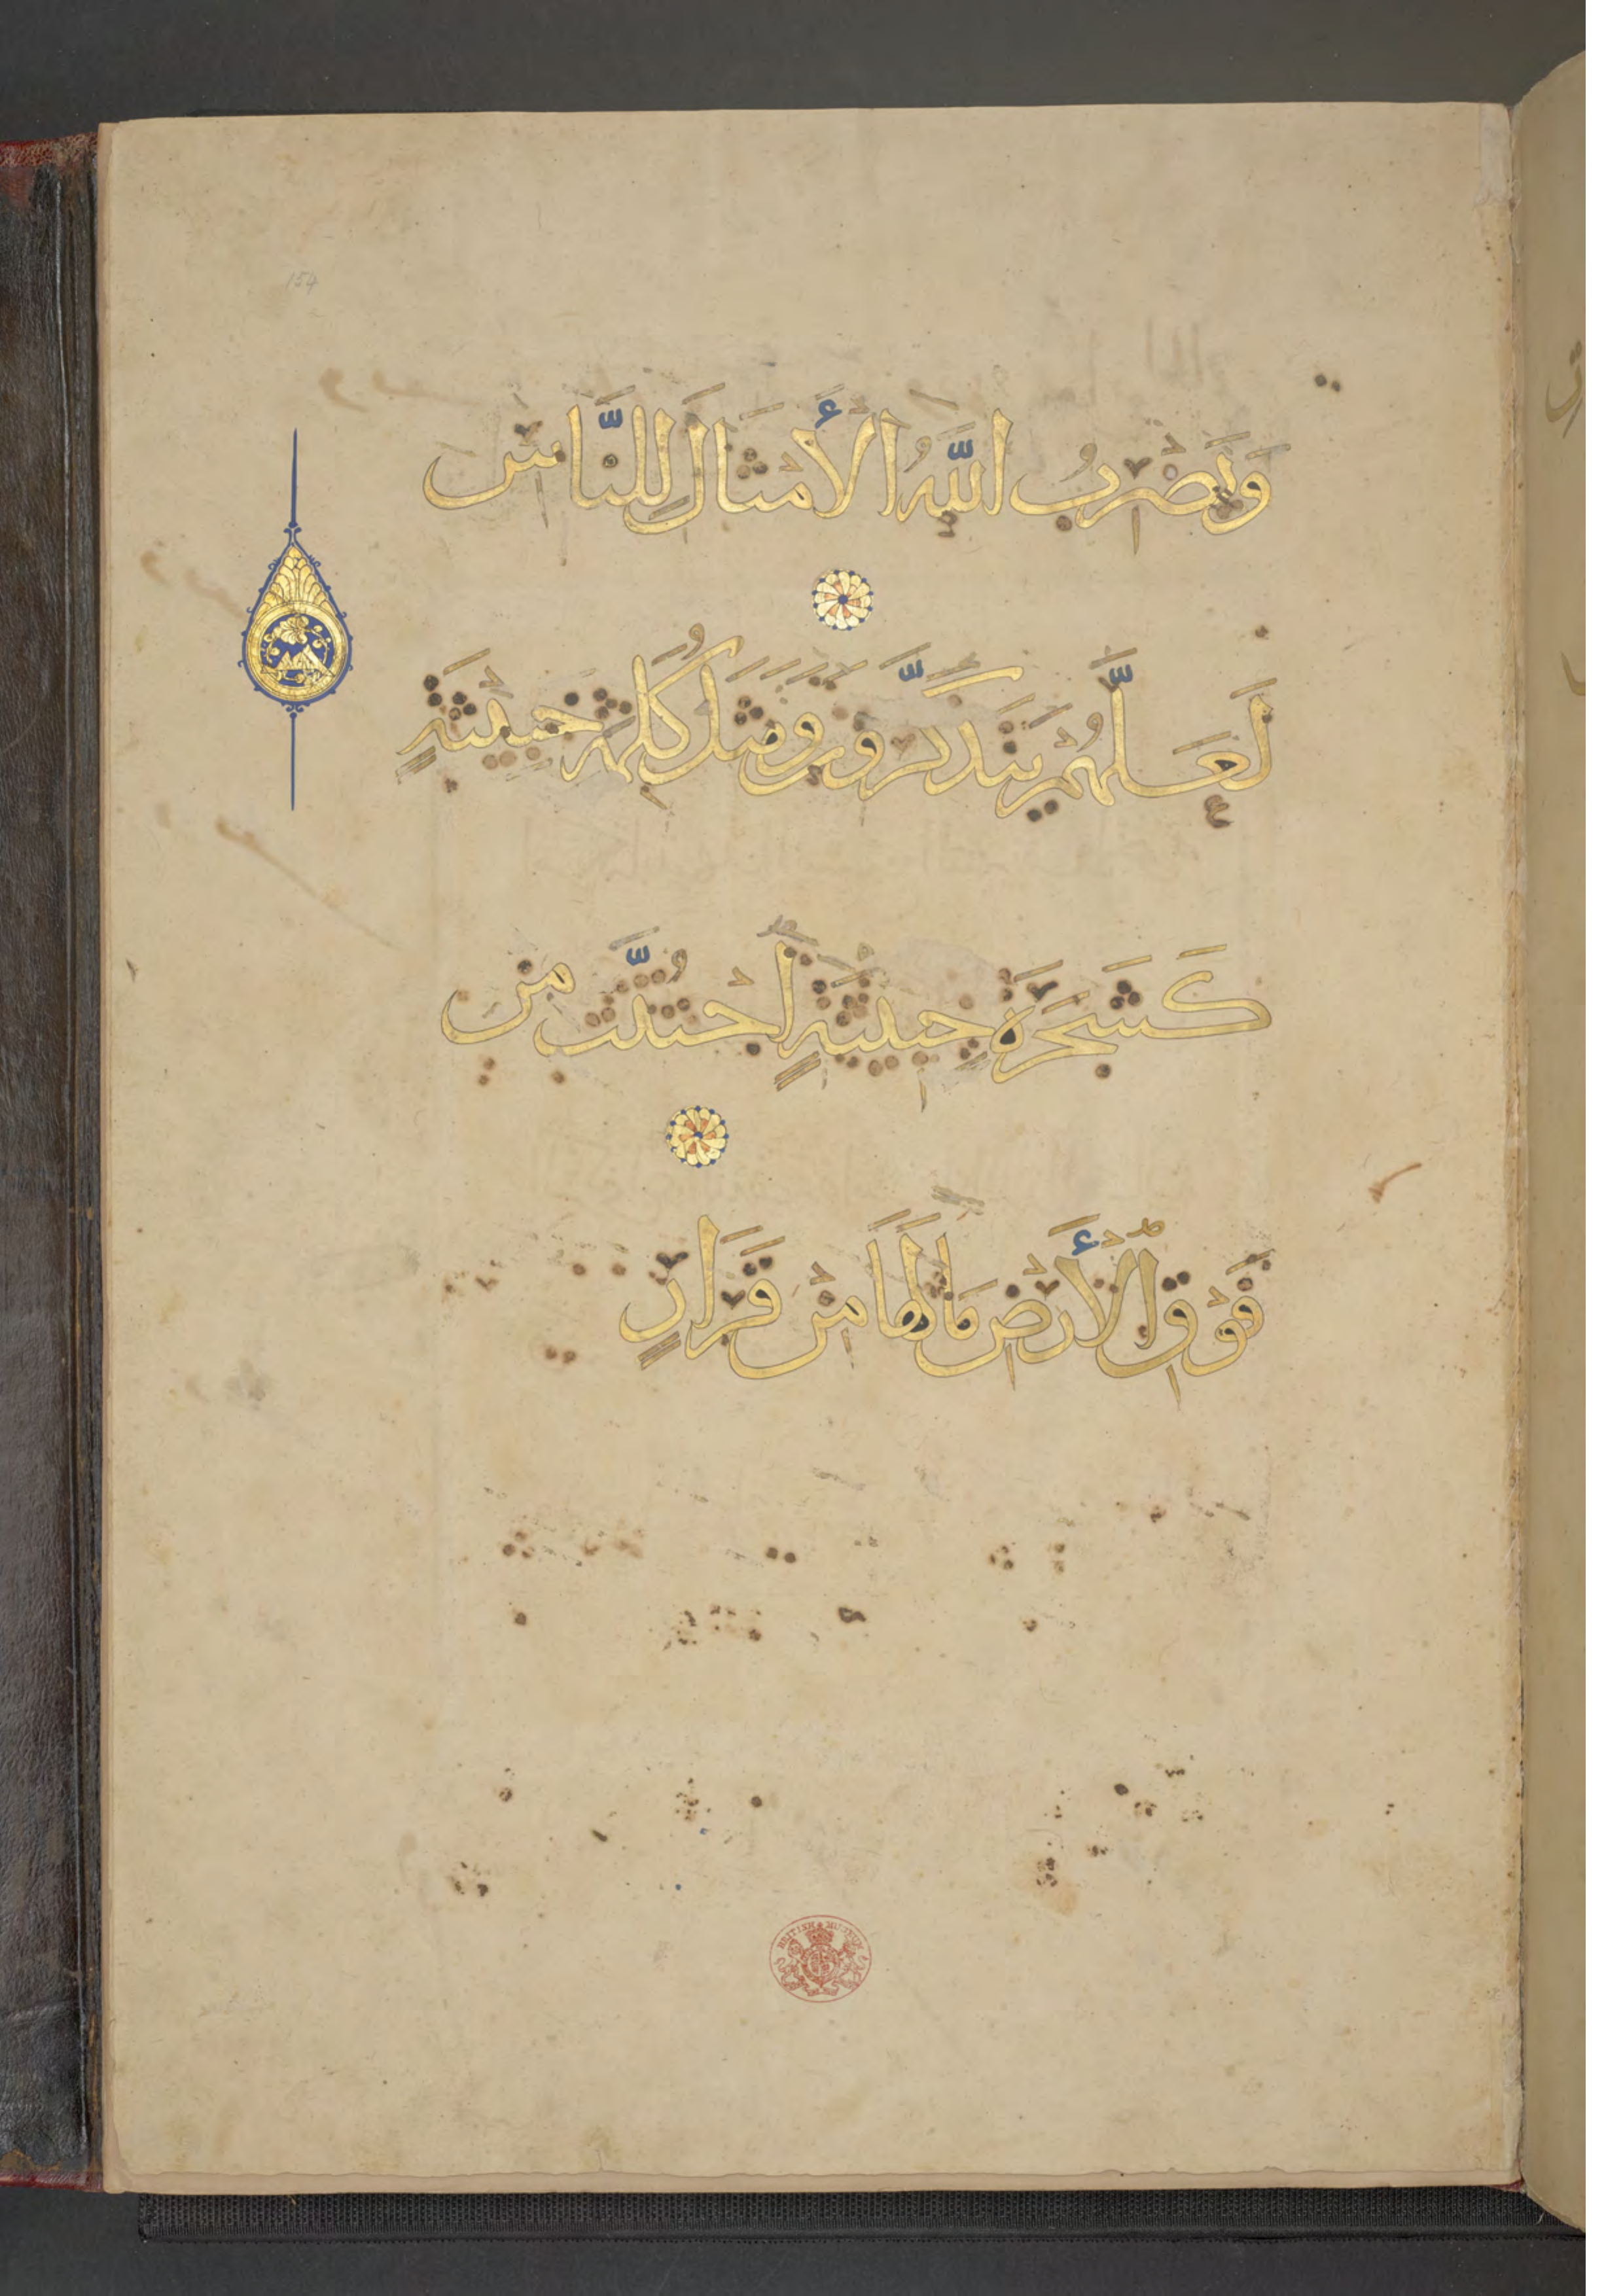 154
وَيَضْرِبُ اللَّهُ الْأَمْثَالَ لِلنَّاسِ
لَعَلَّهُمْ يَتَذَكَّرُونَ وَمَثَلُ كَلِمَةٍ خَبِيثَةٍ
كَشَجَرَةٍ خَبِيثَةٍ اجْتُثَّتْ مِنْ
فَوْقِ الْأَرْضِ مَا لَهَا مِنْ قَرَارٍ
BRITISH MUSEUM